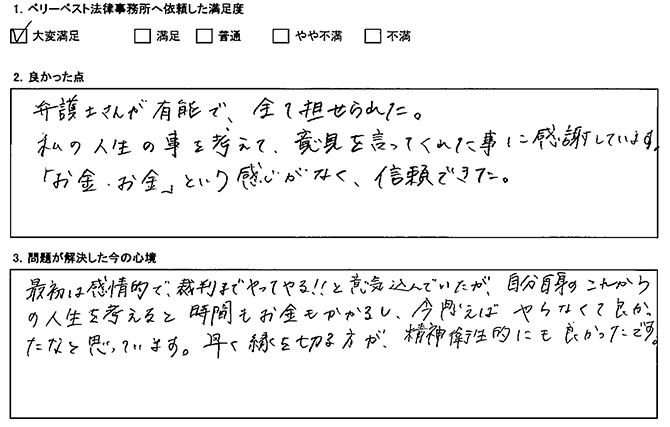 1. ベリーベスト法律事務所へ依頼した満足度
大変満足 満足 普通 やや不満 不満
2. 良かった点
弁護士さんが有能で、全て担せられた。
私の人生の事を考えて、意見を言ってくれた事に感謝しています。
「お金・お金」という感じがなく、信頼できた。
3. 問題が解決した今の心境
最初は感情的で、裁判までやってやる!!と意気込んでいたが、自分自身のこれから
の人生を考えると時間もお金もかかるし、今思えばやらなくて良かっ
たなと思っています。早く縁を切る方が、精神衛生的にも良かったです。